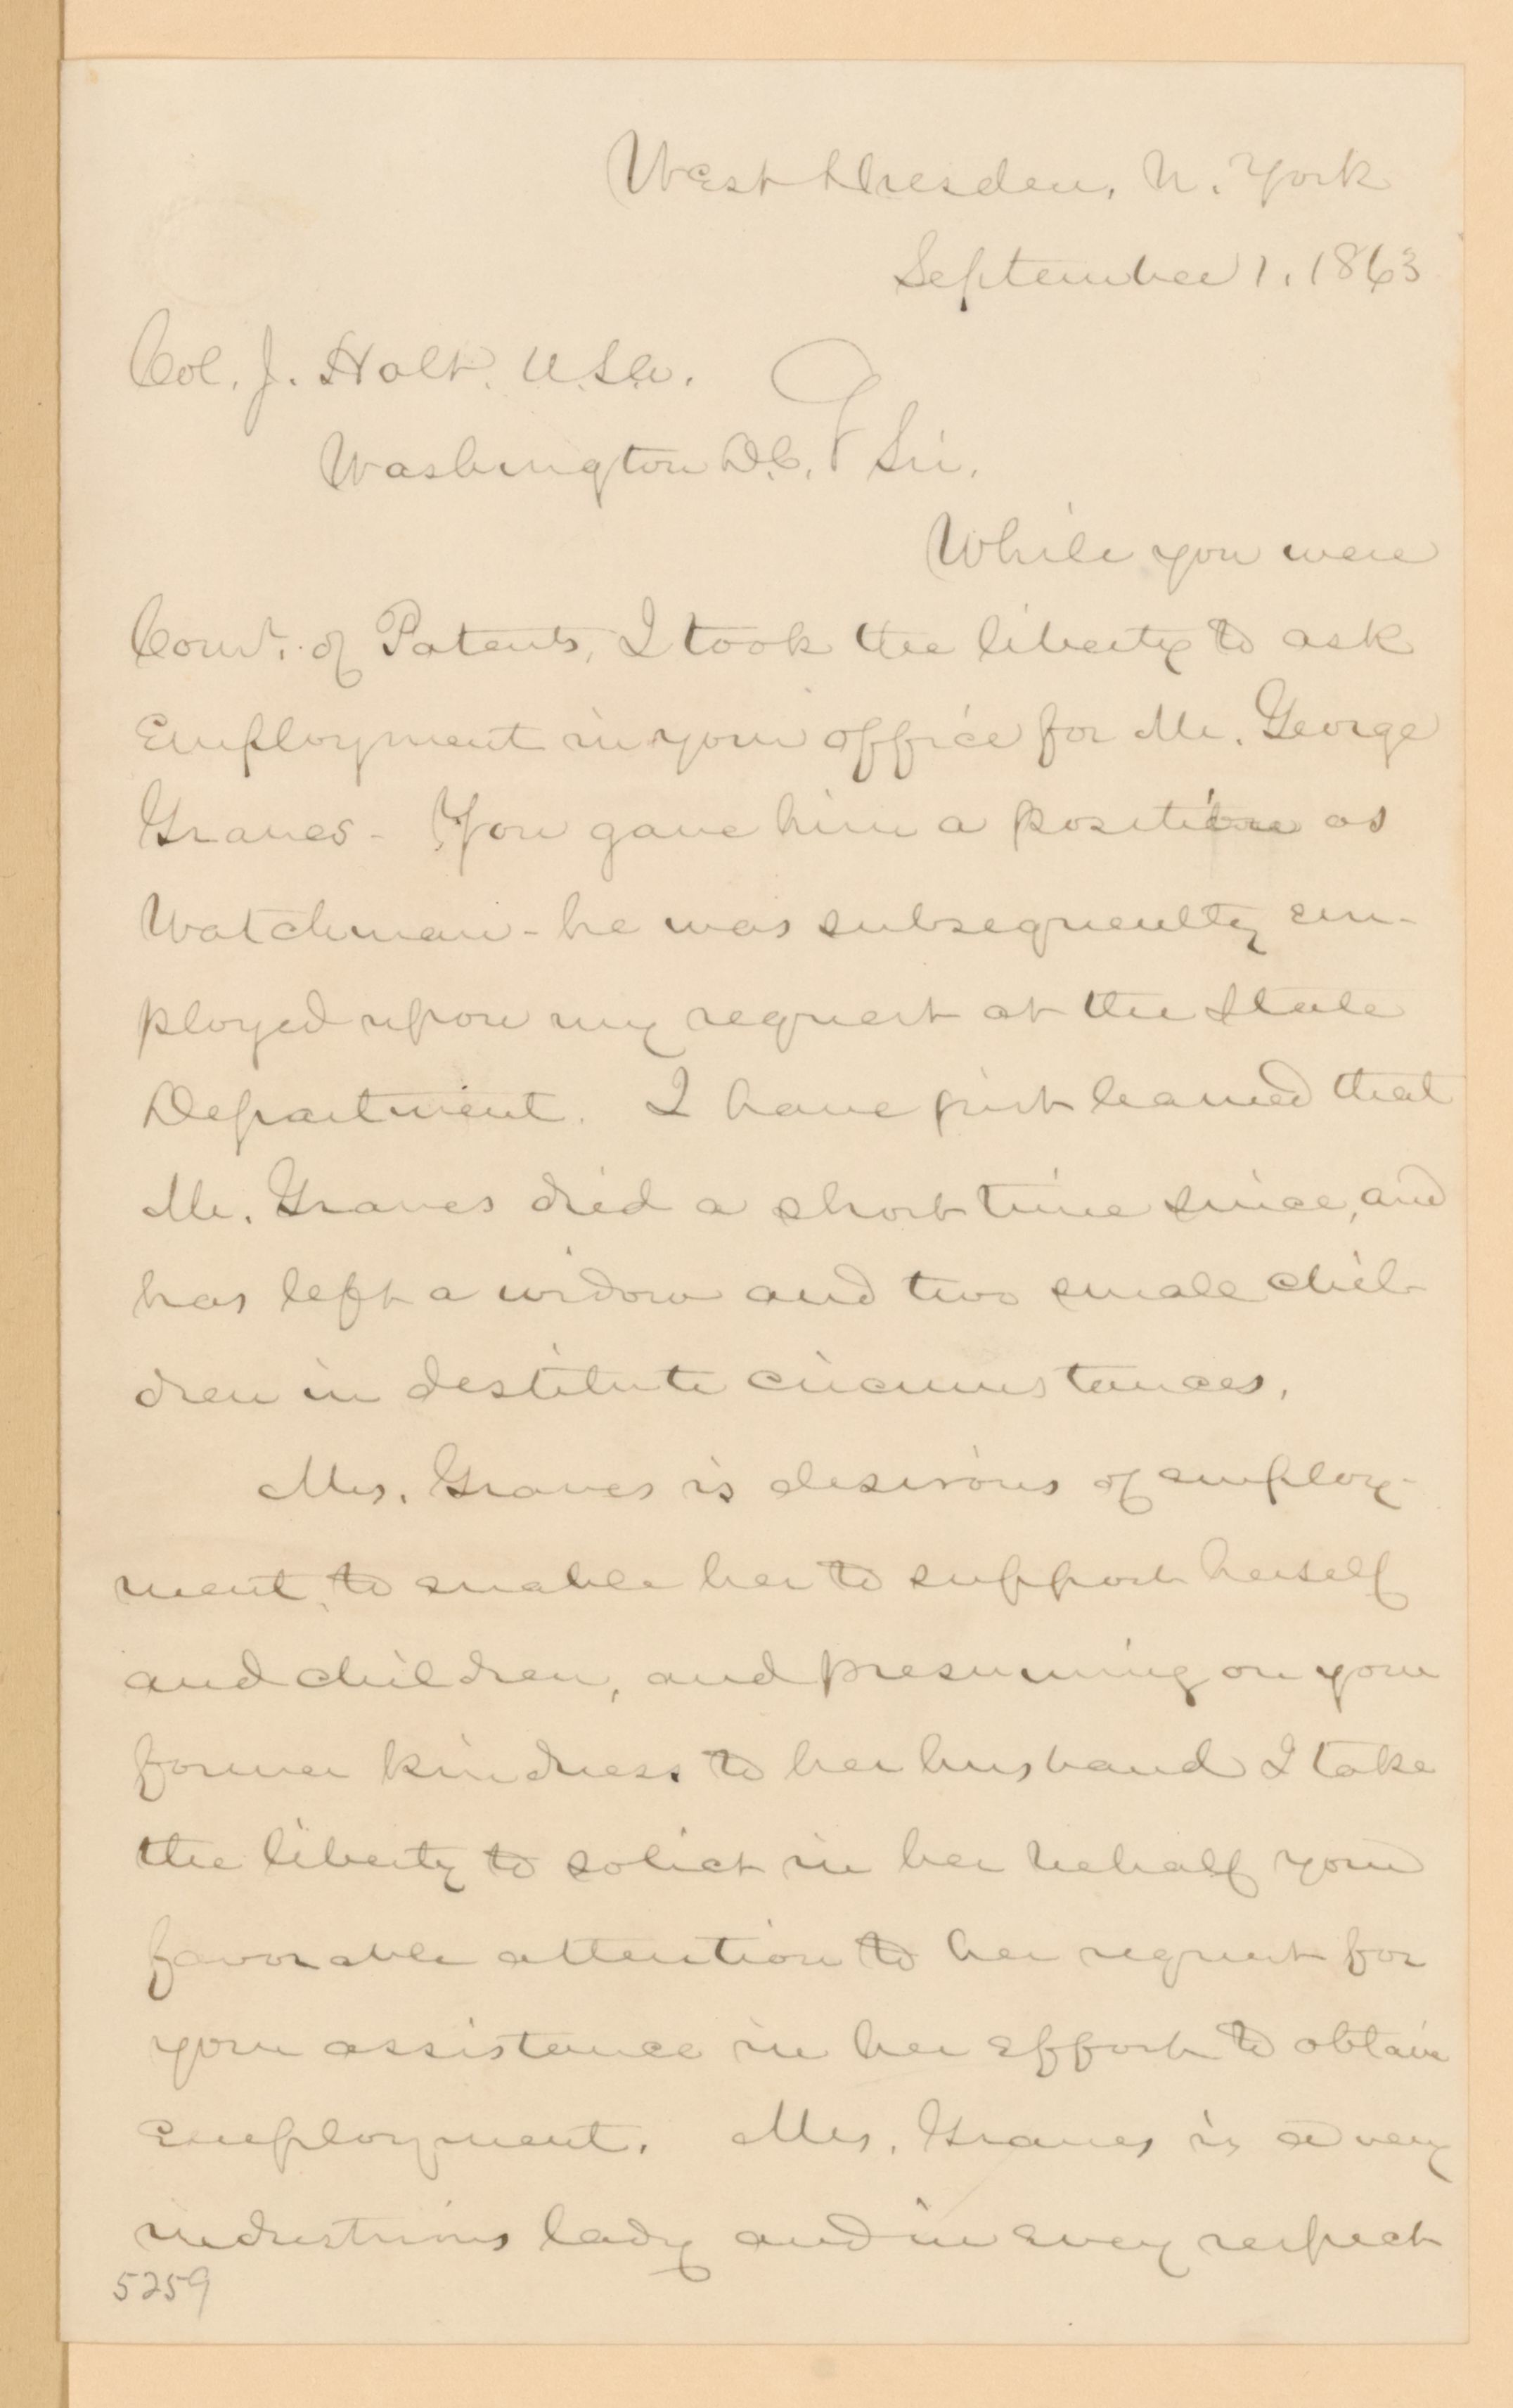 West Dresden, N. York
September 1, 1863
Col. J. Holt. U.S.A.
Washington D.C. Sir.
While you were
Comr. of Patents, I took the liberty to ask
Employment in your office for Mr. George
Graves - You gave him a position as
Watchman - he was subsequently em-
ployed upon my request at the State
Department. I have just learned that
Mr. Graves died a short time since, and
has left a widow and two small chil-
dren in destitute circumstances.
Mrs. Graves is desirous of employ-
ment, to enable her to support herself
and children, and presuming on your
former kindness to her husband I take
the liberty to solict in her behalf your
favorable attention to her request for
your assistance in her effort to obtain
Employment. Mrs. Graves is a very
industrious lady and in every respect
5259